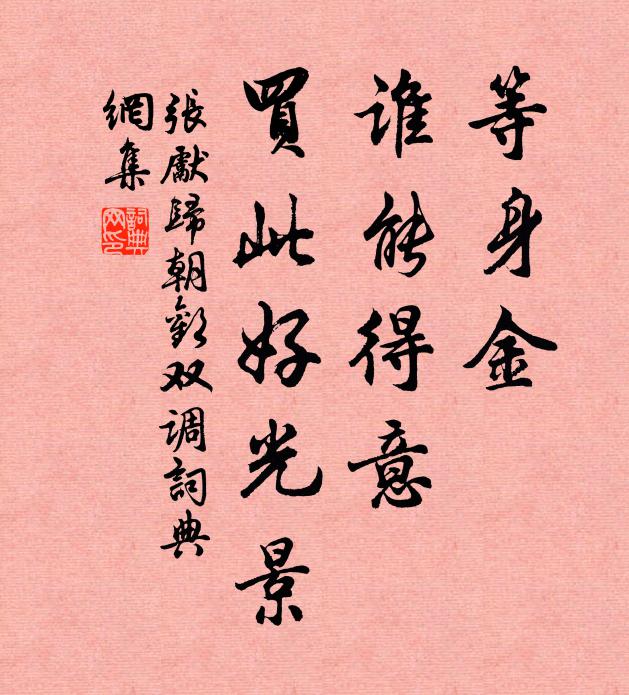 等身金
谁能得意
買此好光景
張獻歸朝歡双调詞典
網集
詞典網印